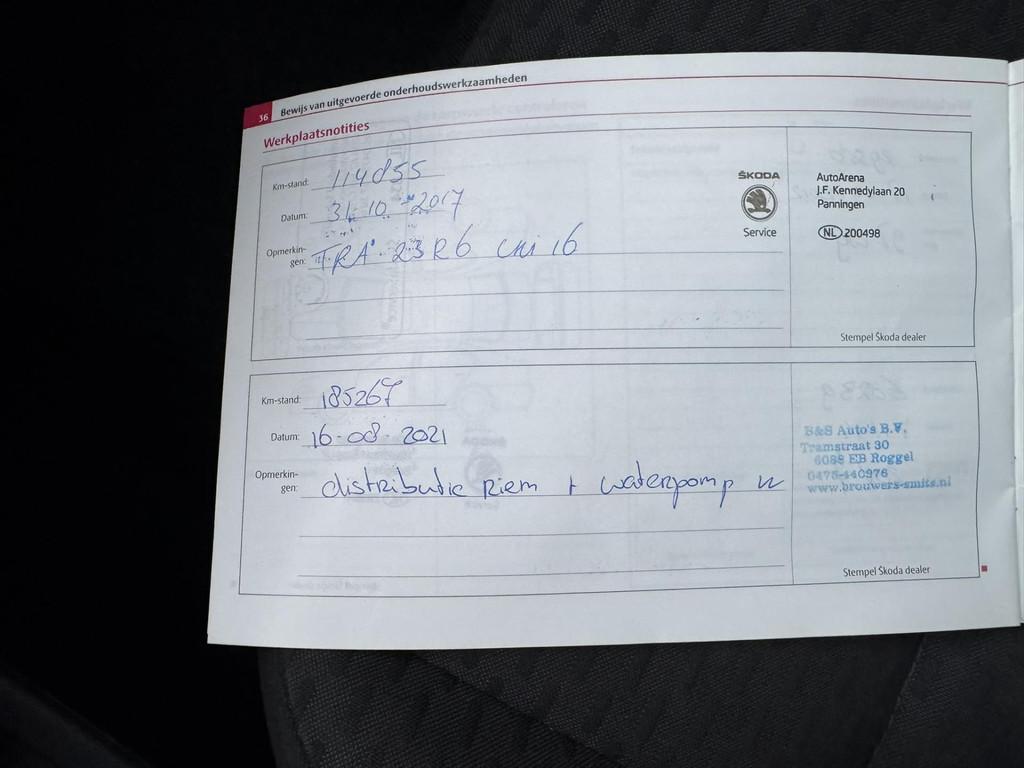 36 Bewijs van uitgevoerde onderhoudswerkzaamheden
Werkplaatsnotities
Km-stand: 114855
Datum: 31-10-2017
Opmerkin-
gen: TRA 23R6 Uni 16
ŠKODA
Service
AutoArena
J.F. Kennedylaan 20
Panningen
NL 200498
Stempel Škoda dealer
Km-stand: 185267
Datum: 16-08-2021
Opmerkin-
gen: distributie Riem + waterpomp
B&S Auto's B.V.
Tramstraat 30
6088 EB Roggel
0475-440976
www.brouwers-smits.nl
Stempel Škoda dealer